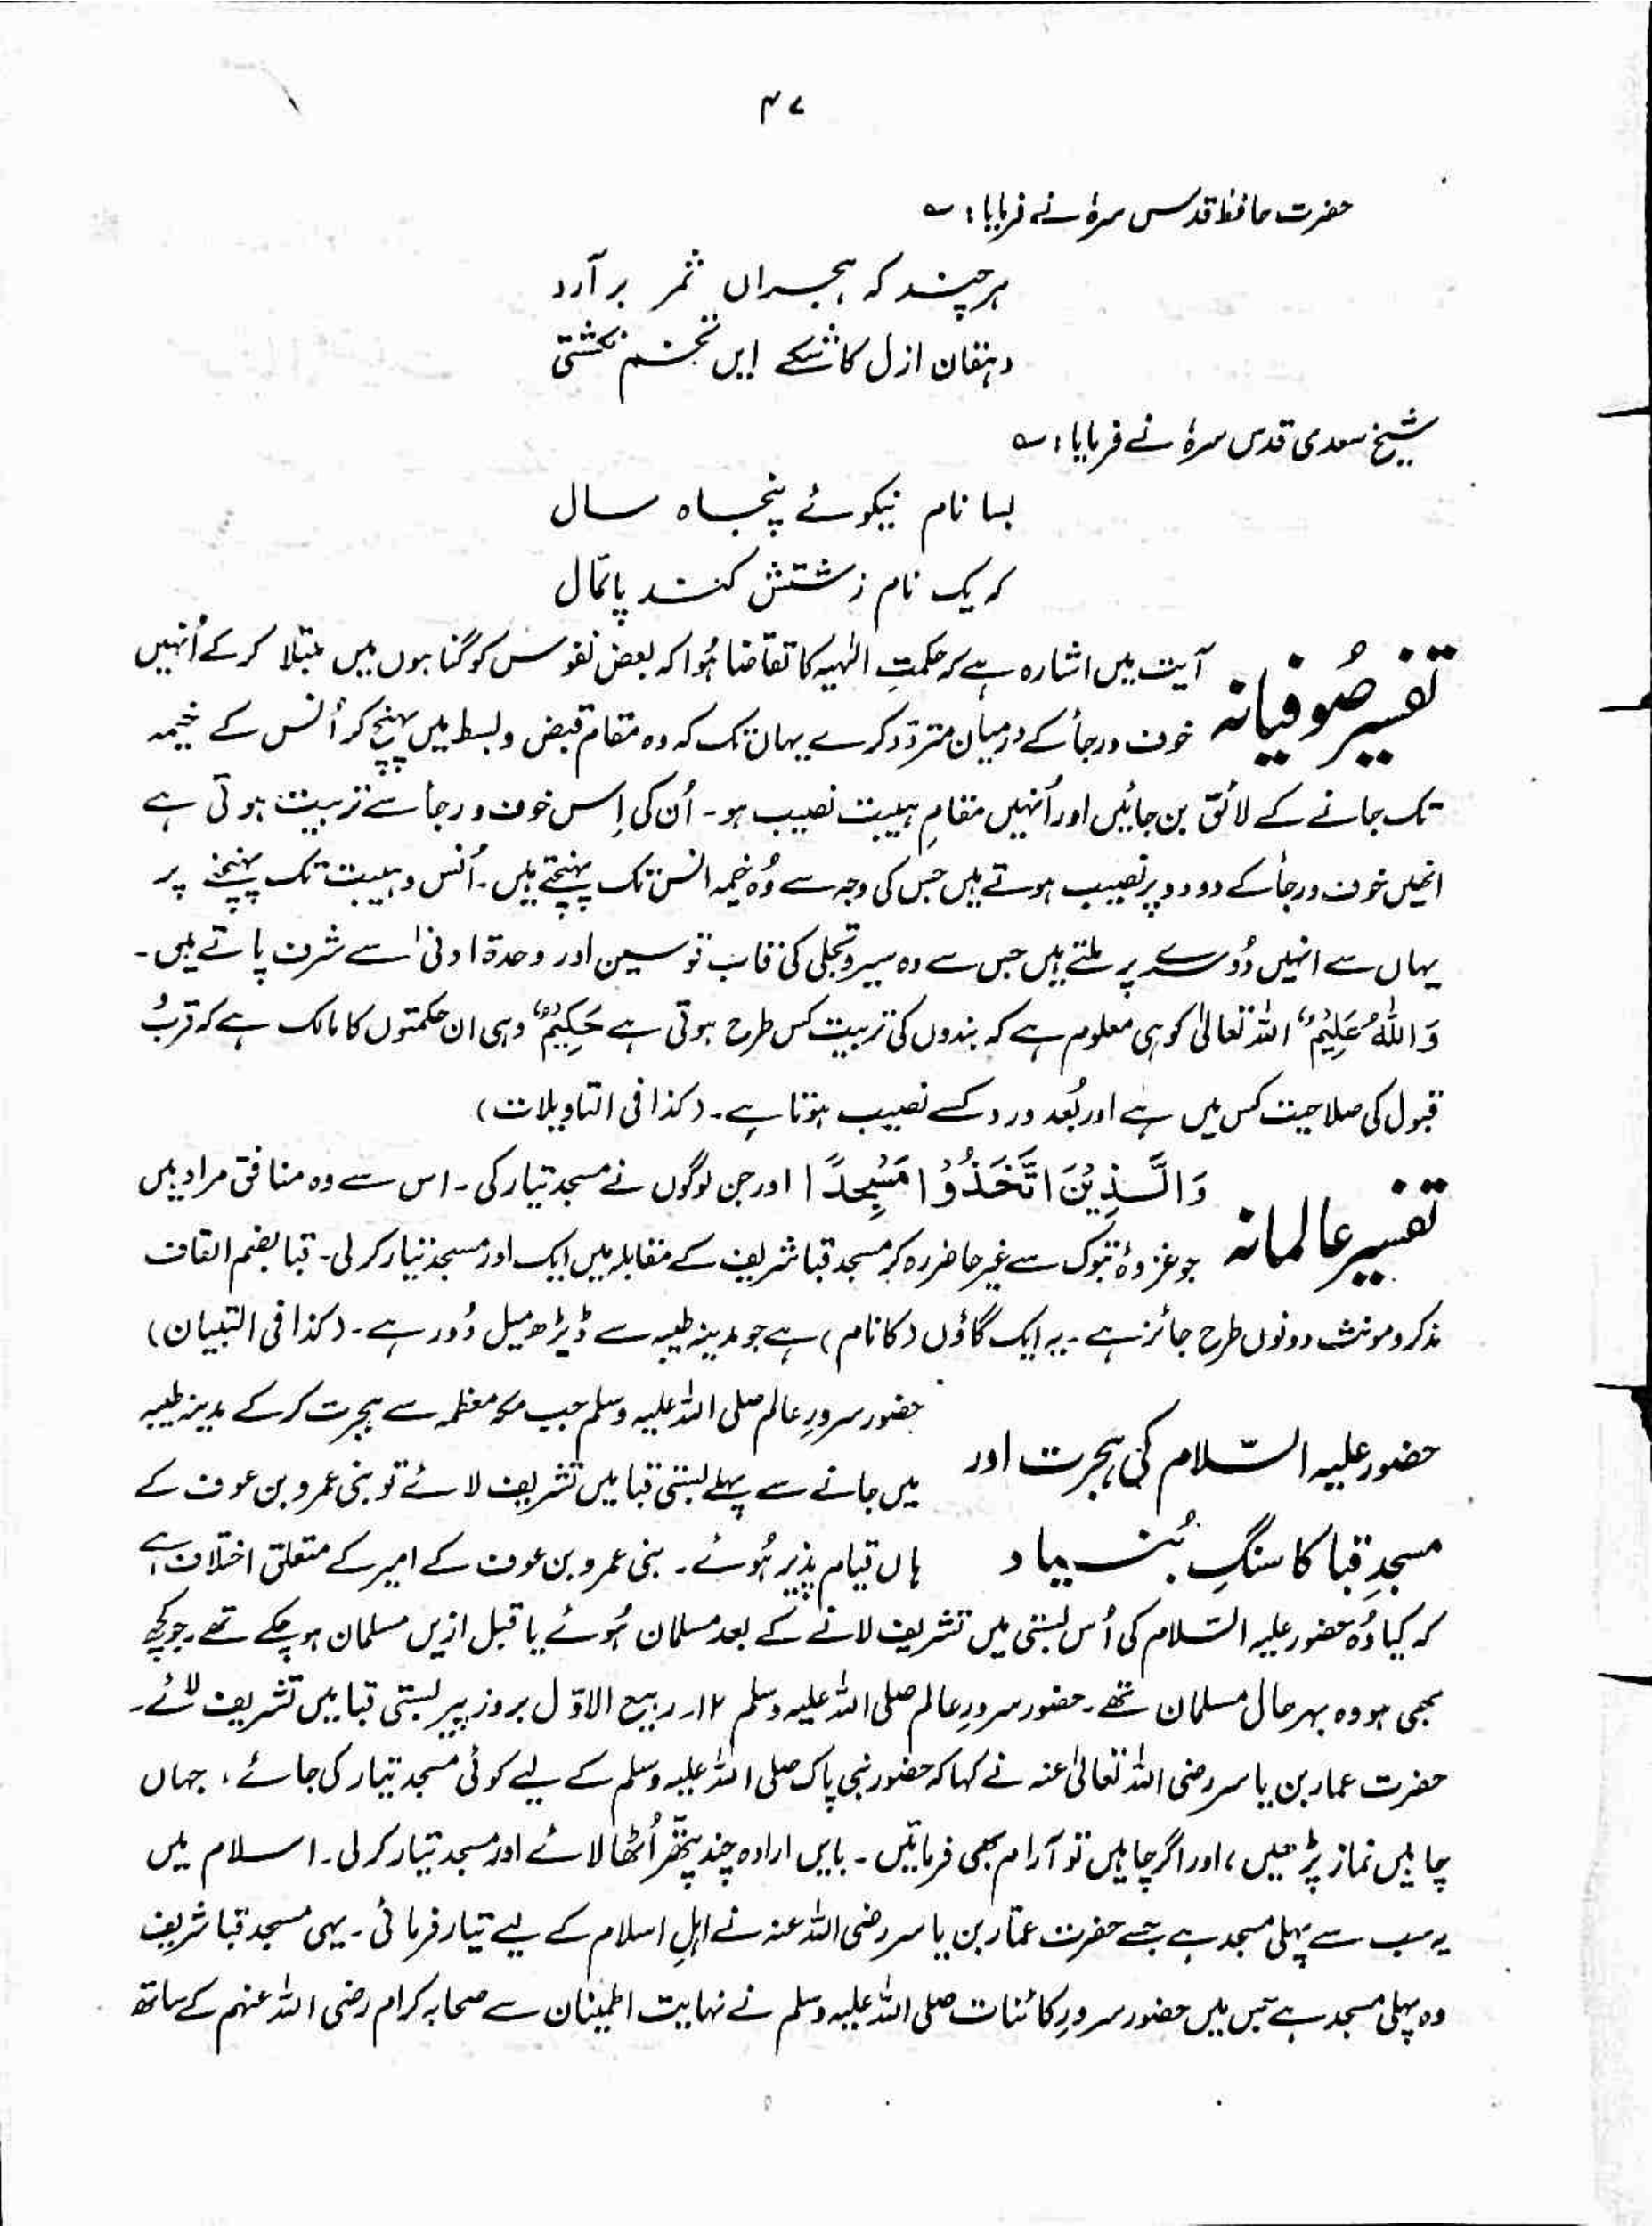 ۴۷
حضرت حافظ قدس سرہٗ نے فرمایا : ؎
ہر چند کہ ہجراں ثمر بر آرد
دہقان ازل کاشکے ایں تخم نکشتی
شیخ سعدی قدس سرہٗ نے فرمایا : ؎
بسا نام نیکوئے پنجاہ سال
کہ یک نام زشتش کند پائمال
تفسیر صُوفیانہ آیت میں اشارہ ہے کہ حکمتِ الٰہیہ کا تقاضا ہُوا کہ بعض نفوس کو گناہوں میں مبتلا کر کے اُنہیں
خوف و رجأ کے درمیان متردّد کرے یہاں تک کہ وہ مقام قبض و بسط میں پہنچ کر اُنس کے خیمہ
تک جانے کے لائق بن جائیں اور اُنہیں مقامِ ہیبت نصیب ہو۔ اُن کی اِس خوف و رجأ سے تربیت ہوتی ہے
انھیں خوف و رجأ کے دو دو پر نصیب ہوتے ہیں جس کی وجہ سے وُہ خیمہ انس تک پہنچتے ہیں۔ اُنس و ہیبت تک پہنچنے پر
یہاں سے انہیں دُوسرے پر ملتے ہیں جس سے وہ سیر و تجلی کی قاب قوسین اور وحدۃ ادنیٰ سے شرف پاتے ہیں۔
وَاللہُ عَلِیْمٌ اللہ تعالیٰ کو ہی معلوم ہے کہ بندوں کی تربیت کس طرح ہوتی ہے حَکِیْمٌ وہی ان حکمتوں کا مالک ہے کہ قربُ
قبول کی صلاحیت کس میں ہے اور بُعد و رد کسے نصیب ہوتا ہے۔ (کذا فی التاویلات)
تفسیر عالمانہ وَالَّذِیْنَ اتَّخَذُوْا مَسْجِدًا اور جن لوگوں نے مسجد تیار کی۔ اس سے وہ منافق مراد ہیں
جو غزوۂ تبوک سے غیر حاضر رہ کر مسجد قبا شریف کے مقابلہ میں ایک اور مسجد تیار کر لی۔ قبا بضم القاف
مذکر و مونث دونوں طرح جائز ہے۔ یہ ایک گاؤں (کا نام) ہے جو مدینہ طیبہ سے ڈیڑھ میل دُور ہے۔ (کذا فی التبیان)
حضور علیہ السّلام کی ہجرت اور
مسجدِ قبا کا سنگِ بُنیاد
حضور سرورِ عالم صلی اللہ علیہ وسلم جب مکہ معظمہ سے ہجرت کر کے مدینہ طیبہ
میں جانے سے پہلے بستی قبا میں تشریف لائے تو بنی عمرو بن عوف کے
ہاں قیام پذیر ہُوئے۔ بنی عمرو بن عوف کے امیر کے متعلق اختلاف ہے
کہ کیا وُہ حضور علیہ السّلام کی اُس بستی میں تشریف لانے کے بعد مسلمان ہُوئے یا قبل ازیں مسلمان ہو چکے تھے۔ جو کچھ
بھی ہو وہ بہرحال مسلمان تھے۔ حضور سرورِ عالم صلی اللہ علیہ وسلم ۱۲۔ ربیع الاوّل بروز پیر بستی قبا میں تشریف لائے۔
حضرت عمار بن یاسر رضی اللہ تعالیٰ عنہ نے کہا کہ حضور نبی پاک صلی اللہ علیہ وسلم کے لیے کوئی مسجد تیار کی جائے، جہاں
چاہیں نماز پڑھیں، اور اگر چاہیں تو آرام بھی فرمائیں۔ بایں ارادہ چند پتھّر اُٹھا لائے اور مسجد تیار کر لی۔ اسلام میں
یہ سب سے پہلی مسجد ہے جسے حضرت عمّار بن یاسر رضی اللہ عنہ نے اہلِ اسلام کے لیے تیار فرمائی۔ یہی مسجد قبا شریف
وہ پہلی مسجد ہے جس میں حضور سرورِ کائنات صلی اللہ علیہ وسلم نے نہایت اطمینان سے صحابہ کرام رضی اللہ عنہم کے ساتھ